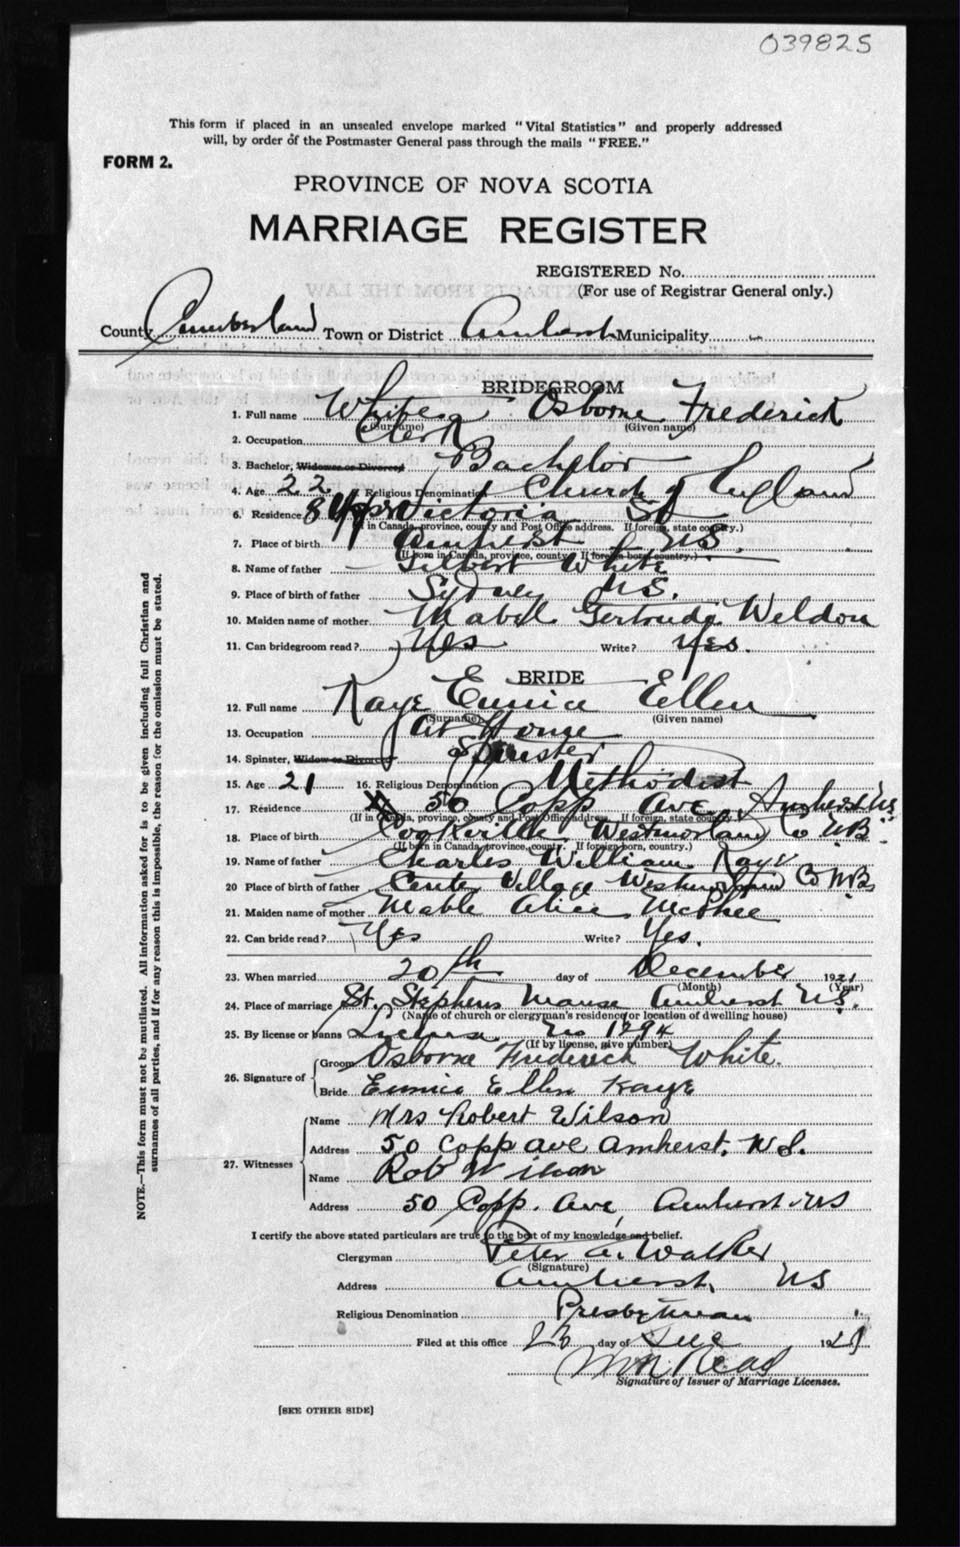 039825
This form if placed in an unsealed envelope marked "Vital Statistics" and properly addressed
will, by order of the Postmaster General pass through the mails "FREE."
FORM 2.
PROVINCE OF NOVA SCOTIA
MARRIAGE REGISTER
REGISTERED No.
(For use of Registrar General only.)
County Cumberland Town or District Amherst Municipality
BRIDEGROOM
1. Full name White Osborne Frederick
(Surname) (Given name)
2. Occupation Clerk
3. Bachelor, Widower or Divorced Bachelor
4. Age 22 5. Religious Denomination Church of England
6. Residence 8 Upper Victoria St
(If in Canada, province, county and Post Office address. If foreign, state country.)
7. Place of birth Amherst N.S.
(If born in Canada, province, county. If foreign born, country.)
8. Name of father Gilbert White
9. Place of birth of father Sydney N.S.
10. Maiden name of mother Mabel Gertrude Weldon
11. Can bridegroom read? Yes Write? Yes.
BRIDE
12. Full name Kaye Eunice Ellen
(Surname) (Given name)
13. Occupation At Home
14. Spinster, Widow or Divorced Spinster
15. Age 21 16. Religious Denomination Methodist
17. Residence 50 Copp Ave Amherst NS
(If in Canada, province, county and Post Office address. If foreign, state country.)
18. Place of birth Cookville Westmorland Co NB
(If born in Canada, province, county. If foreign born, country.)
19. Name of father Charles William Kaye
20 Place of birth of father Center Village Westmorland Co NB
21. Maiden name of mother Mable Alice McPhee
22. Can bride read? Yes Write? Yes.
23. When married 20th day of December 1921
(Month) (Year)
24. Place of marriage St. Stephens Manse Amherst N.S.
(Name of church or clergyman's residence or location of dwelling house)
25. By license or banns License No 1294
(If by license, give number)
26. Signature of Groom Osborne Frederick White.
Bride Eunice Ellen Kaye
27. Witnesses Name Mrs Robert Wilson
Address 50 Copp ave Amherst, N.S.
Name Rob Wilson
Address 50 Copp. Ave, Amherst NS
I certify the above stated particulars are true to the best of my knowledge and belief.
Clergyman Peter A. Walker
(Signature)
Address Amherst, NS
Religious Denomination Presbyterian
Filed at this office day of Dec 1921
Signature of Issuer of Marriage Licenses.
[SEE OTHER SIDE]
NOTE.—This form must not be mutilated. All information asked for is to be given including full Christian and
surnames of all parties, and if for any reason this is impossible, the reason for the omission must be stated.